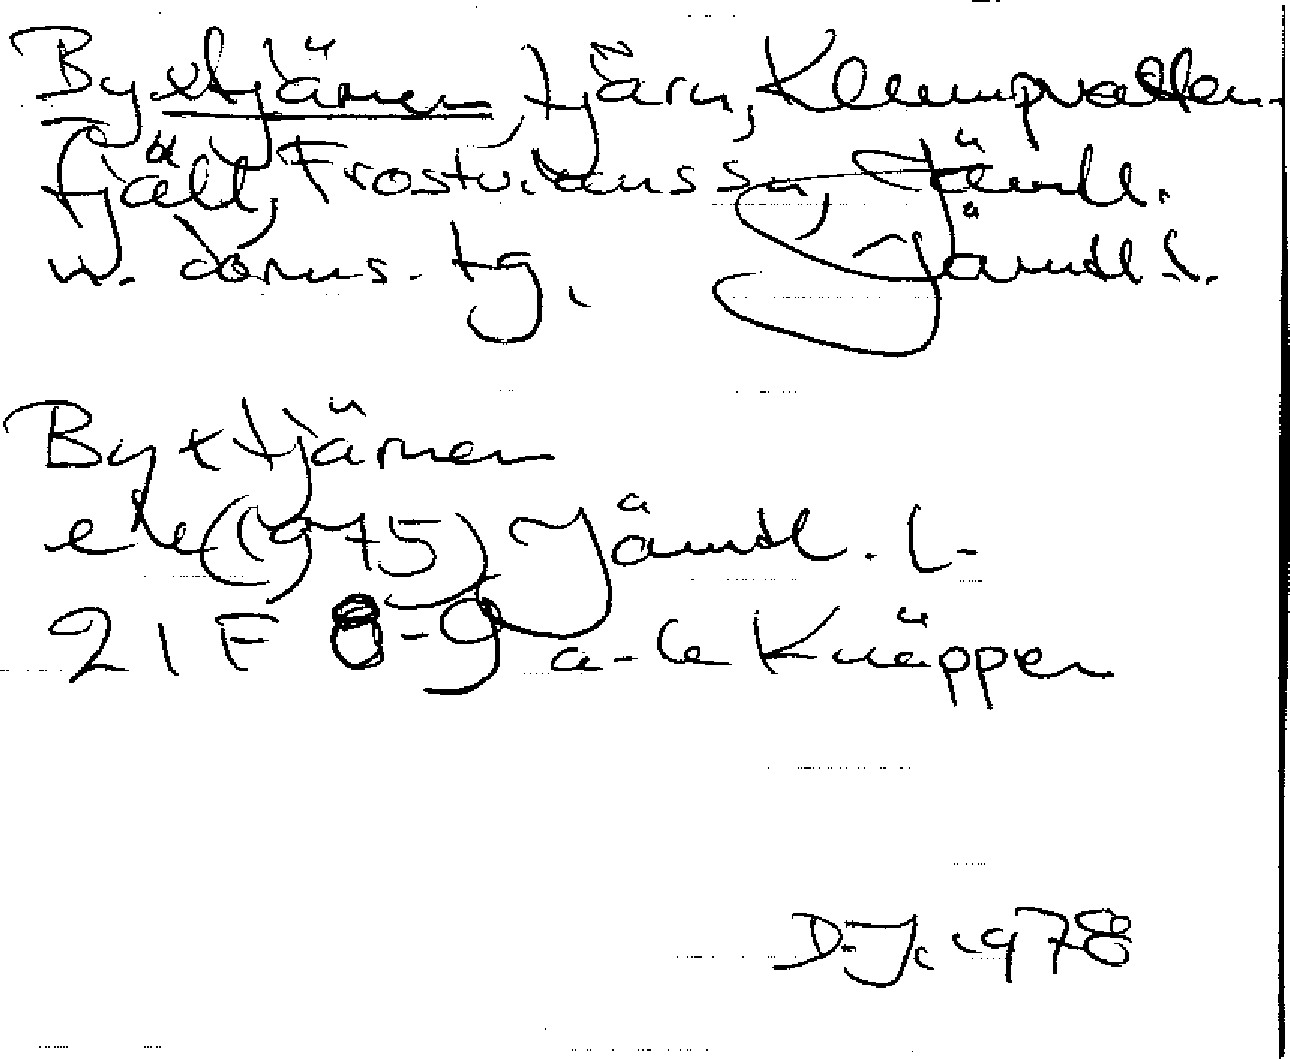 Byxtjärnen, tjärn, Klumpvatten-
fjäll, Frostvikens sn, Jämtl.
Jämtl l.
Byxtjärnen
ek (1975) Jämtl. l.
21 F 8-9 a-b Knäppen
D.J. 1978